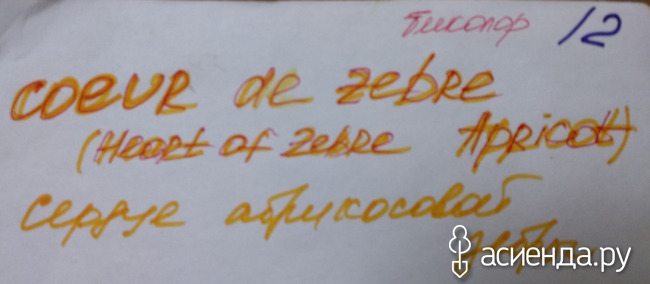 12
COEUR de ZEBRE
(Heart of ZEBRE Apricot)
сердце абрикосовой
асиенда.ру